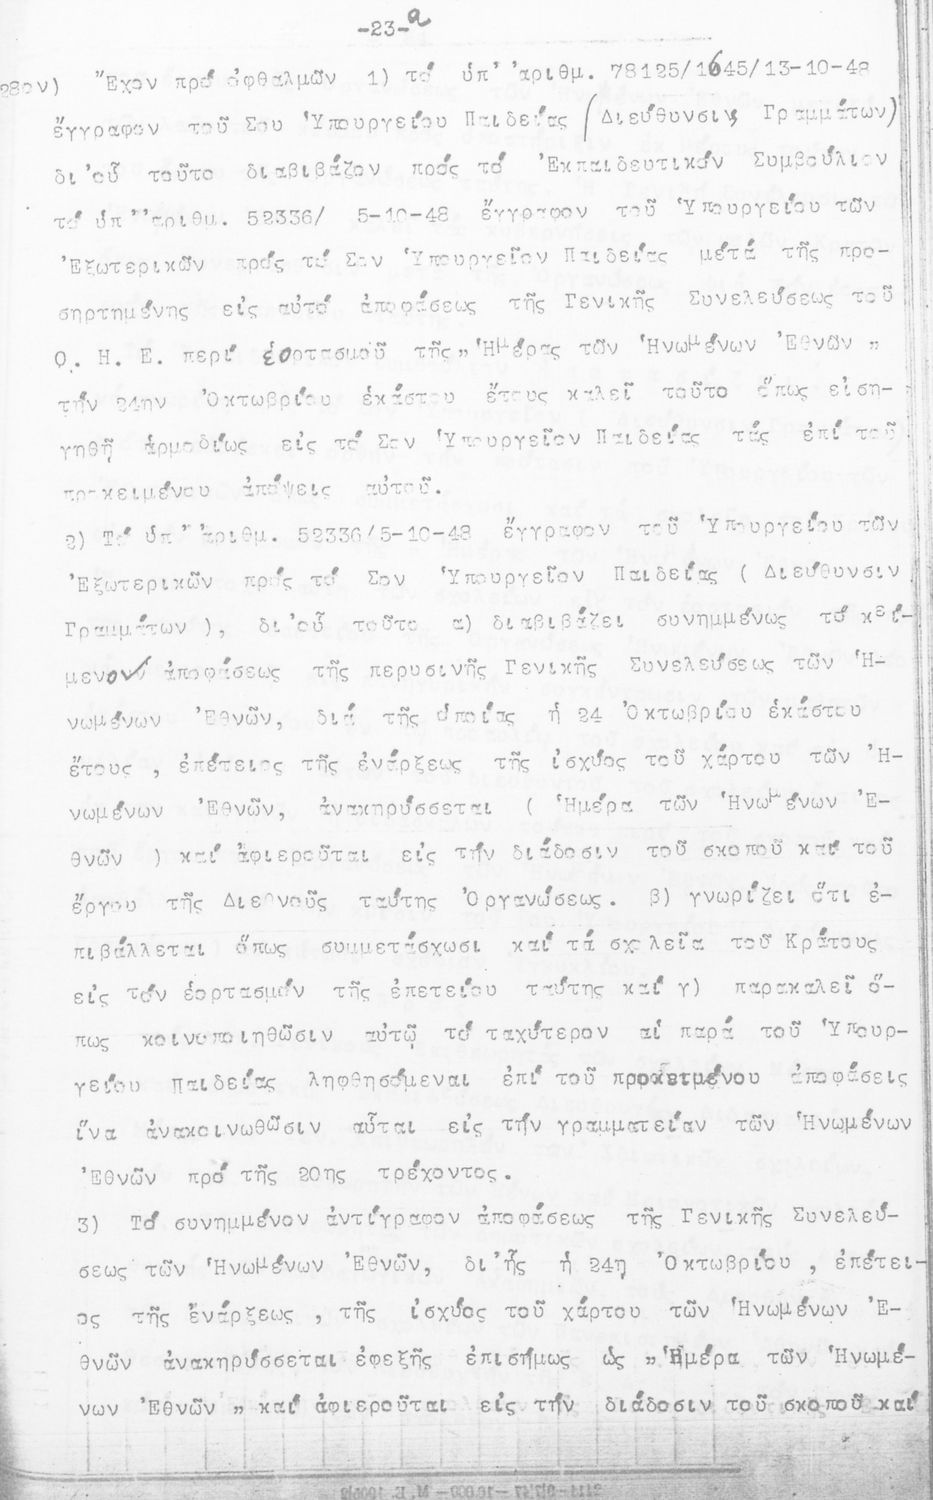 -23-α
28ον) Ἔχον πρό ὀφθαλμῶν 1) τό ὑπ' ἀριθμ. 78125/1645/13-10-48
ἔγγραφον τοῦ Σου Ὑπουργείου Παιδείας (Διεύθυνσις Γραμμάτων)
δι'οὗ τοῦτο διαβιβάζον πρός τό Ἐκπαιδευτικόν Συμβούλιον
τό ὑπ' ἀριθμ. 52336/ 5-10-48 ἔγγραφον τοῦ Ὑπουργείου τῶν
Ἐξωτερικῶν πρός τό Σον Ὑπουργεῖον Παιδείας μετά τῆς προ-
σηρτημένης εἰς αὐτό ἀποφάσεως τῆς Γενικῆς Συνελεύσεως τοῦ
Ο. Η. Ε. περί ἑορτασμοῦ τῆς "Ἡμέρας τῶν Ἡνωμένων Ἐθνῶν "
τήν 24ην Ὀκτωβρίου ἑκάστου ἔτους καλεῖ τοῦτο ὅπως εἰση-
γηθῇ ἁρμοδίως εἰς τό Σον Ὑπουργεῖον Παιδείας τάς ἐπί τοῦ
προκειμένου ἀπόψεις αὐτοῦ.
2) Τό ὑπ' ἀριθμ. 52336/5-10-48 ἔγγραφον τοῦ Ὑπουργείου τῶν
Ἐξωτερικῶν πρός τό Σον Ὑπουργεῖον Παιδείας ( Διεύθυνσιν
Γραμμάτων ), δι'οὗ τοῦτο α) διαβιβάζει συνημμένως τό κεί-
μενον ἀποφάσεως τῆς περυσινῆς Γενικῆς Συνελεύσεως τῶν Ἡ-
νωμένων Ἐθνῶν, διά τῆς ὁποίας ἡ 24 Ὀκτωβρίου ἑκάστου
ἔτους , ἐπέτειος τῆς ἐνάρξεως τῆς ἰσχύος τοῦ χάρτου τῶν Ἡ-
νωμένων Ἐθνῶν, ἀνακηρύσσεται ( Ἡμέρα τῶν Ἡνωμένων Ἐ-
θνῶν ) καί ἀφιεροῦται εἰς τήν διάδοσιν τοῦ σκοποῦ καί τοῦ
ἔργου τῆς Διεθνοῦς ταύτης Ὀργανώσεως. β) γνωρίζει ὅτι ἐ-
πιβάλλεται ὅπως συμμετάσχωσι καί τά σχολεῖα τοῦ Κράτους
εἰς τόν ἑορτασμόν τῆς ἐπετείου ταύτης καί γ) παρακαλεῖ ὅ-
πως κοινοποιηθῶσιν αὐτῷ τό ταχύτερον αἱ παρά τοῦ Ὑπουρ-
γείου Παιδείας ληφθησόμεναι ἐπί τοῦ προκειμένου ἀποφάσεις
ἵνα ἀνακοινωθῶσιν αὗται εἰς τήν γραμματείαν τῶν Ἡνωμένων
Ἐθνῶν πρό τῆς 20ης τρέχοντος.
3) Τό συνημμένον ἀντίγραφον ἀποφάσεως τῆς Γενικῆς Συνελεύ-
σεως τῶν Ἡνωμένων Ἐθνῶν, δι'ἧς ἡ 24η Ὀκτωβρίου , ἐπέτει-
ος τῆς ἐνάρξεως , τῆς ἰσχύος τοῦ χάρτου τῶν Ἡνωμένων Ἐ-
θνῶν ἀνακηρύσσεται ἐφεξῆς ἐπισήμως ὡς "Ἡμέρα τῶν Ἡνωμέ-
νων Ἐθνῶν " καί ἀφιεροῦται εἰς τήν διάδοσιν τοῦ σκοποῦ καί